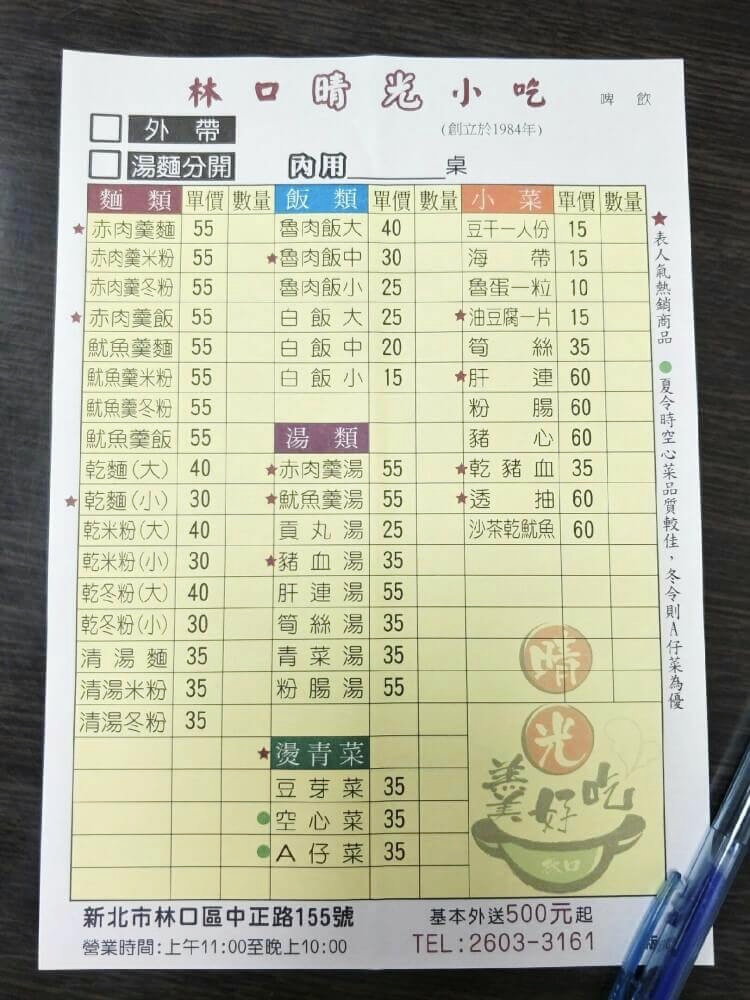 林口晴光小吃
啤 飲
(創立於1984年)
外帶
湯麵分開
內用 桌
麵類 單價 數量 飯類 單價 數量 小菜 單價 數量
★赤肉羹麵 55 魯肉飯大 40 豆干一人份 15
赤肉羹米粉 55 ★魯肉飯中 30 海帶 15
赤肉羹冬粉 55 魯肉飯小 25 魯蛋一粒 10
★赤肉羹飯 55 白飯大 25 ★油豆腐一片 15
魷魚羹麵 55 白飯中 20 筍絲 35
魷魚羹米粉 55 白飯小 15 ★肝連 60
魷魚羹冬粉 55 粉腸 60
魷魚羹飯 55 湯類 豬心 60
乾麵(大) 40 ★赤肉羹湯 55 ★乾豬血 35
★乾麵(小) 30 ★魷魚羹湯 55 ★透抽 60
乾米粉(大) 40 貢丸湯 25 沙茶乾魷魚 60
乾米粉(小) 30 ★豬血湯 35
乾冬粉(大) 40 肝連湯 55
乾冬粉(小) 30 筍絲湯 35
清湯麵 35 青菜湯 35
清湯米粉 35 粉腸湯 55
清湯冬粉 35
★燙青菜
豆芽菜 35
●空心菜 35
●A仔菜 35
★表人氣熱銷商品 ●夏令時空心菜品質較佳,冬令則A仔菜為優
晴
光
林口
新北市林口區中正路155號 基本外送500元起
營業時間:上午11:00至晚上10:00 TEL:2603-3161